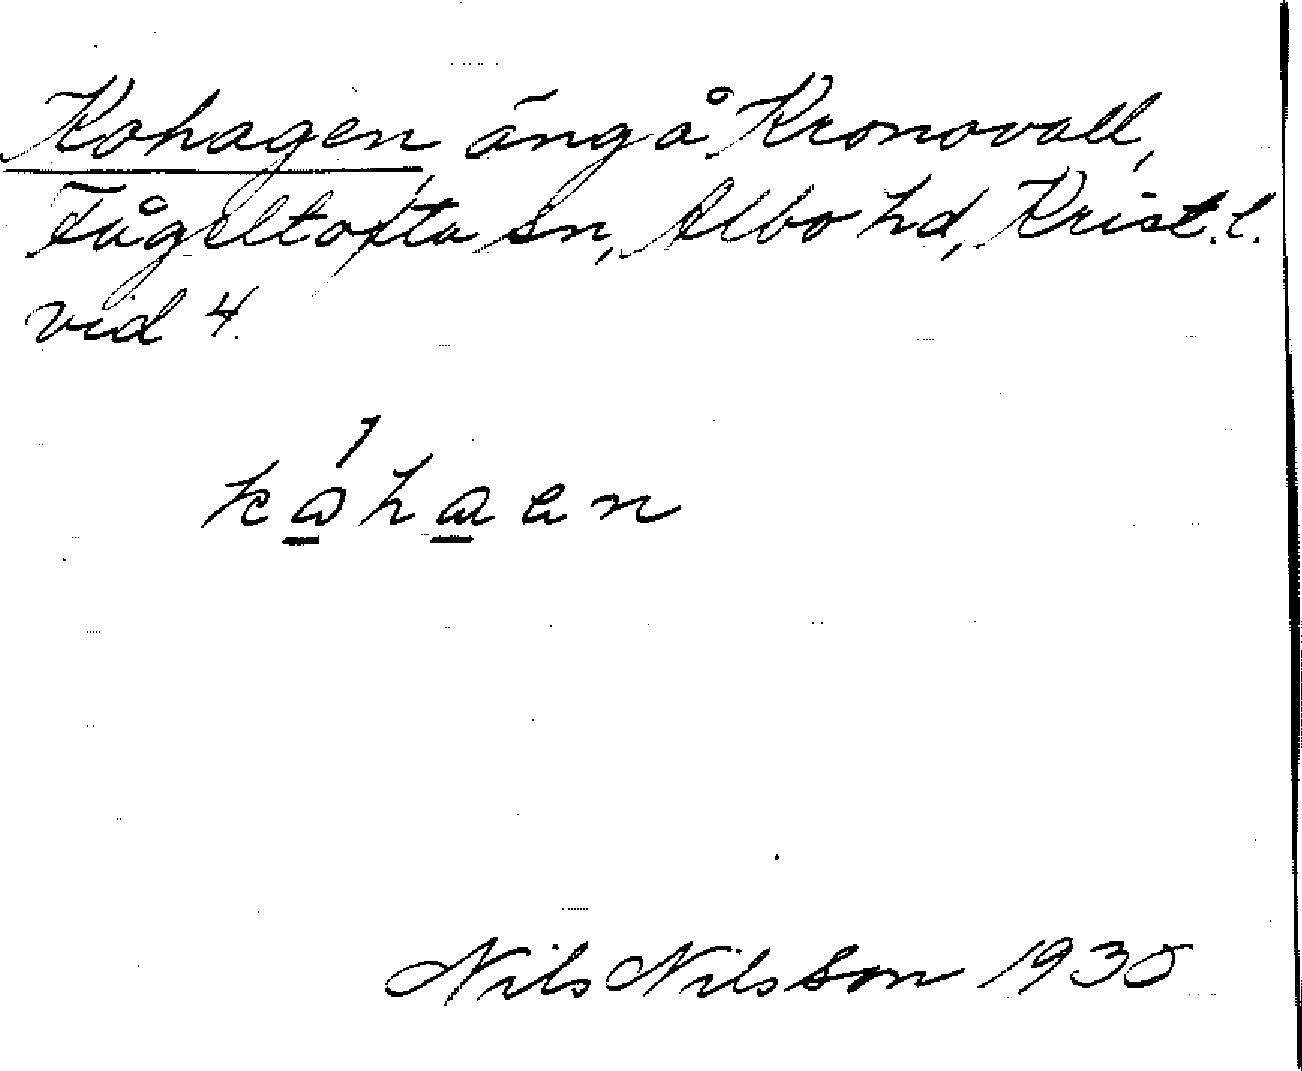 Kohagen, äng å Kronovall,
Fågeltofta sn, Albo hd, Krist.l.
vid 4.
Nils Nilsson 1935